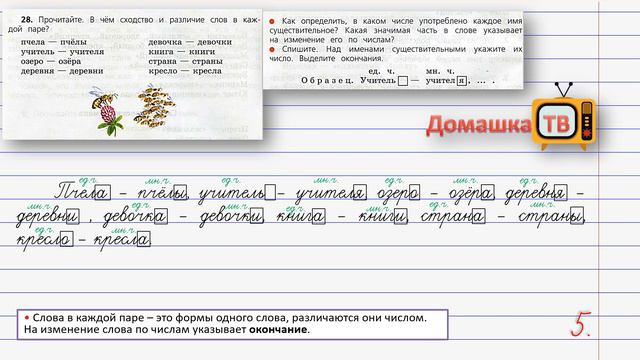 28. Прочитайте. В чём сходство и различие слов в каж-
дой паре?
пчела — пчёлы
учитель — учителя
озеро — озёра
деревня — деревни
девочка — девочки
книга — книги
страна — страны
кресло — кресла
● Как определить, в каком числе употреблено каждое имя
существительное? Какая значимая часть в слове указывает
на изменение его по числам?
● Спишите. Над именами существительными укажите их
число. Выделите окончания.
ед. ч. мн. ч.
Образец. Учитель — учителя, ... .
Домашка ТВ
ед.ч. мн.ч. ед.ч. мн.ч. ед.ч. мн.ч. ед.ч.
Пчела – пчёлы, учитель – учителя, озеро – озёра, деревня –
мн.ч. ед.ч. мн.ч. ед.ч. мн.ч. ед.ч. мн.ч.
деревни , девочка – девочки, книга – книги, страна – страны,
ед.ч. мн.ч.
кресло – кресла.
• Слова в каждой паре – это формы одного слова, различаются они числом.
На изменение слова по числам указывает окончание.
5.